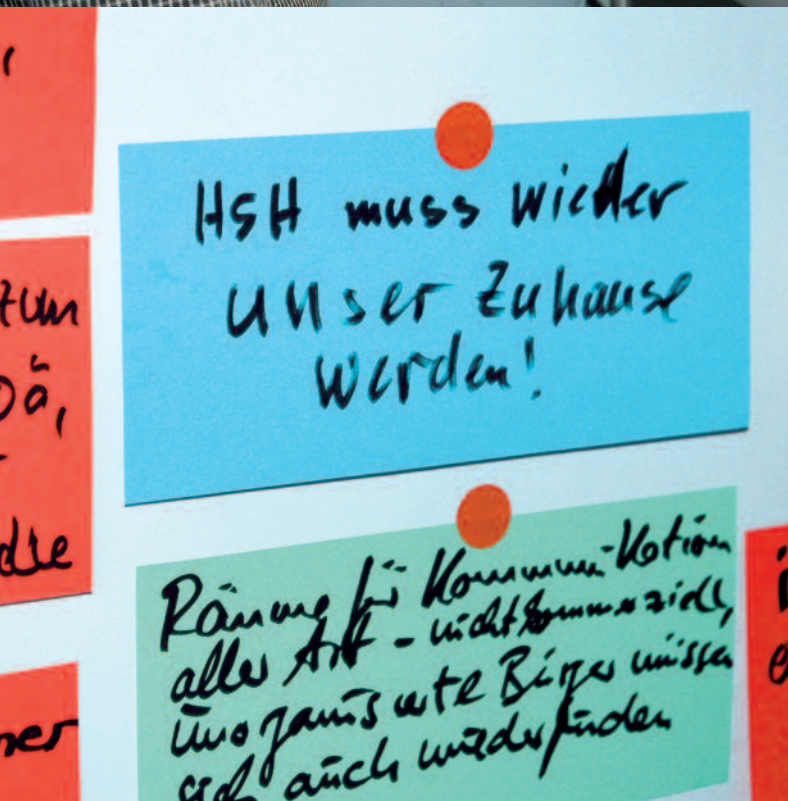 HSH muss wieder
unser Zuhause
werden!
Räume für Kommunikation
aller Art - nicht kommerziell,
Unorganisierte Bürger müssen
sich auch wiederfinden
zum
die